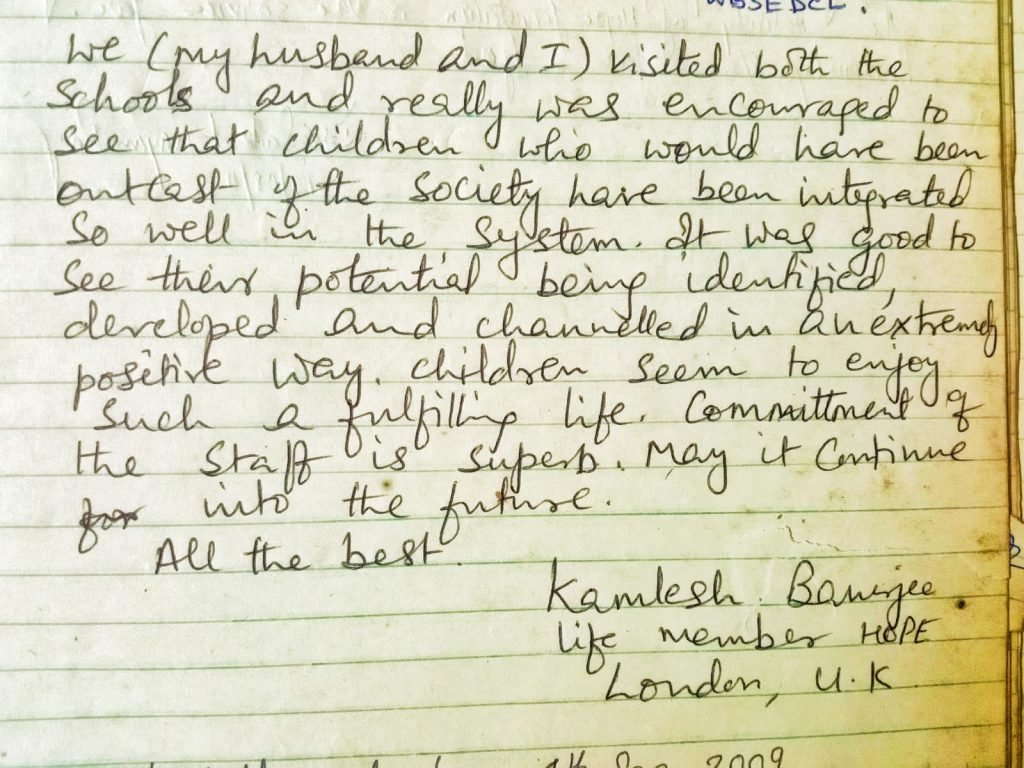 WBSEDCL.
We (my husband and I) visited both the
Schools and really was encouraged to
see that children who would have been
outcast of the society have been integrated
so well in the system. It was good to
see their potential being identified,
developed and channelled in an extremely
positive way. Children seem to enjoy
such a fulfilling life. Committment of
the Staff is superb. May it Continue
for into the future.
All the best.
Kamlesh Banerjee
Life member HOPE
London, U.K
2009